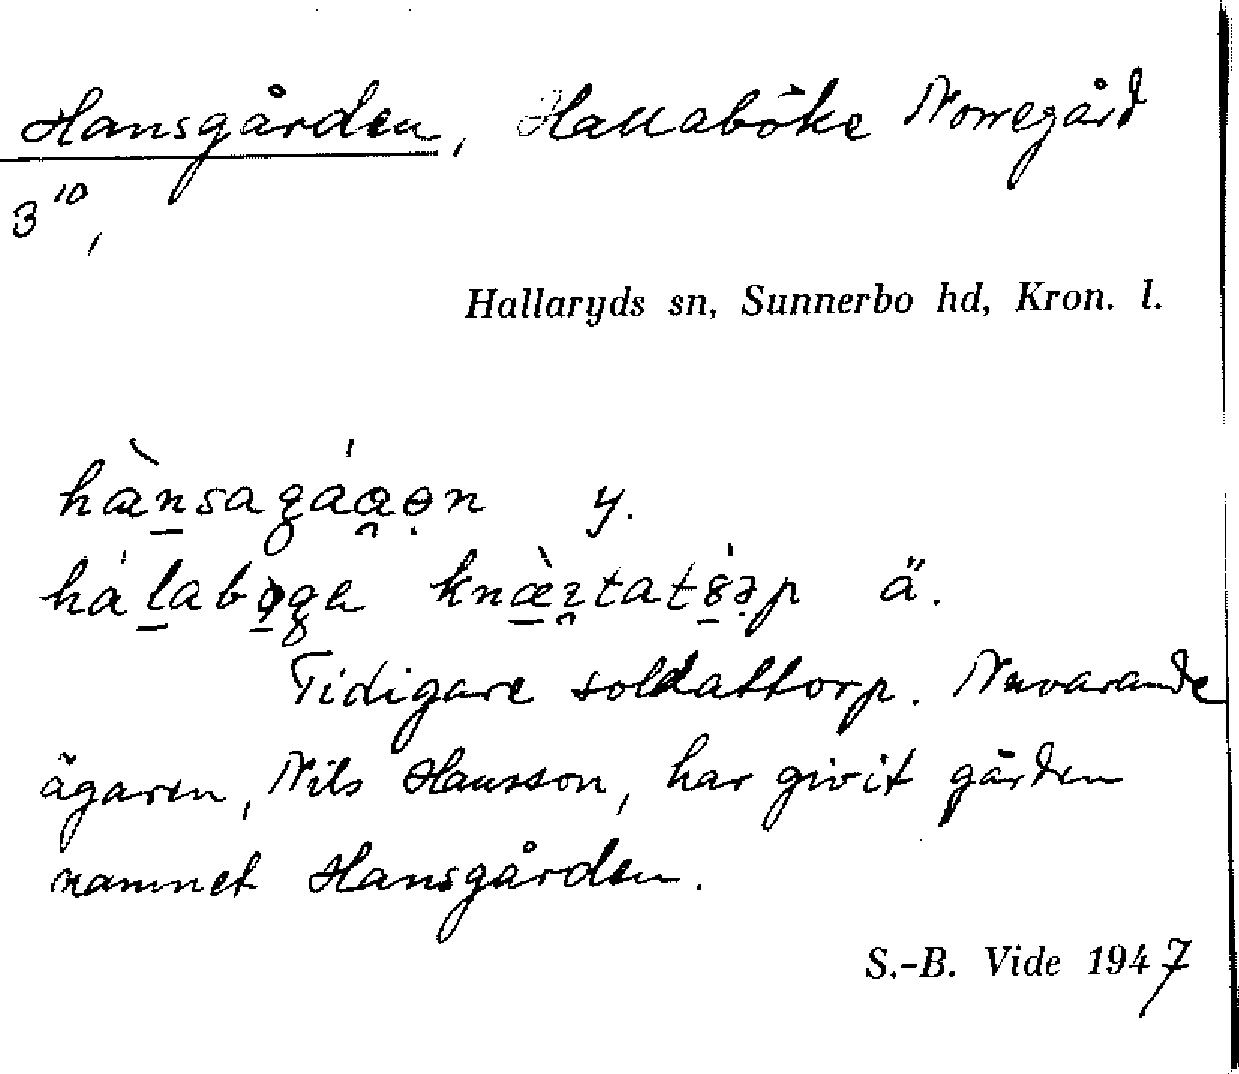 Hansgården, Hallaböke Norregård
3¹⁰,
Hallaryds sn, Sunnerbo hd, Kron. l.
y.
ä.
Tidigare soldattorp. Nuvarande
ägaren, Nils Hansson, har givit gården
namnet Hansgården.
S.-B. Vide 1947